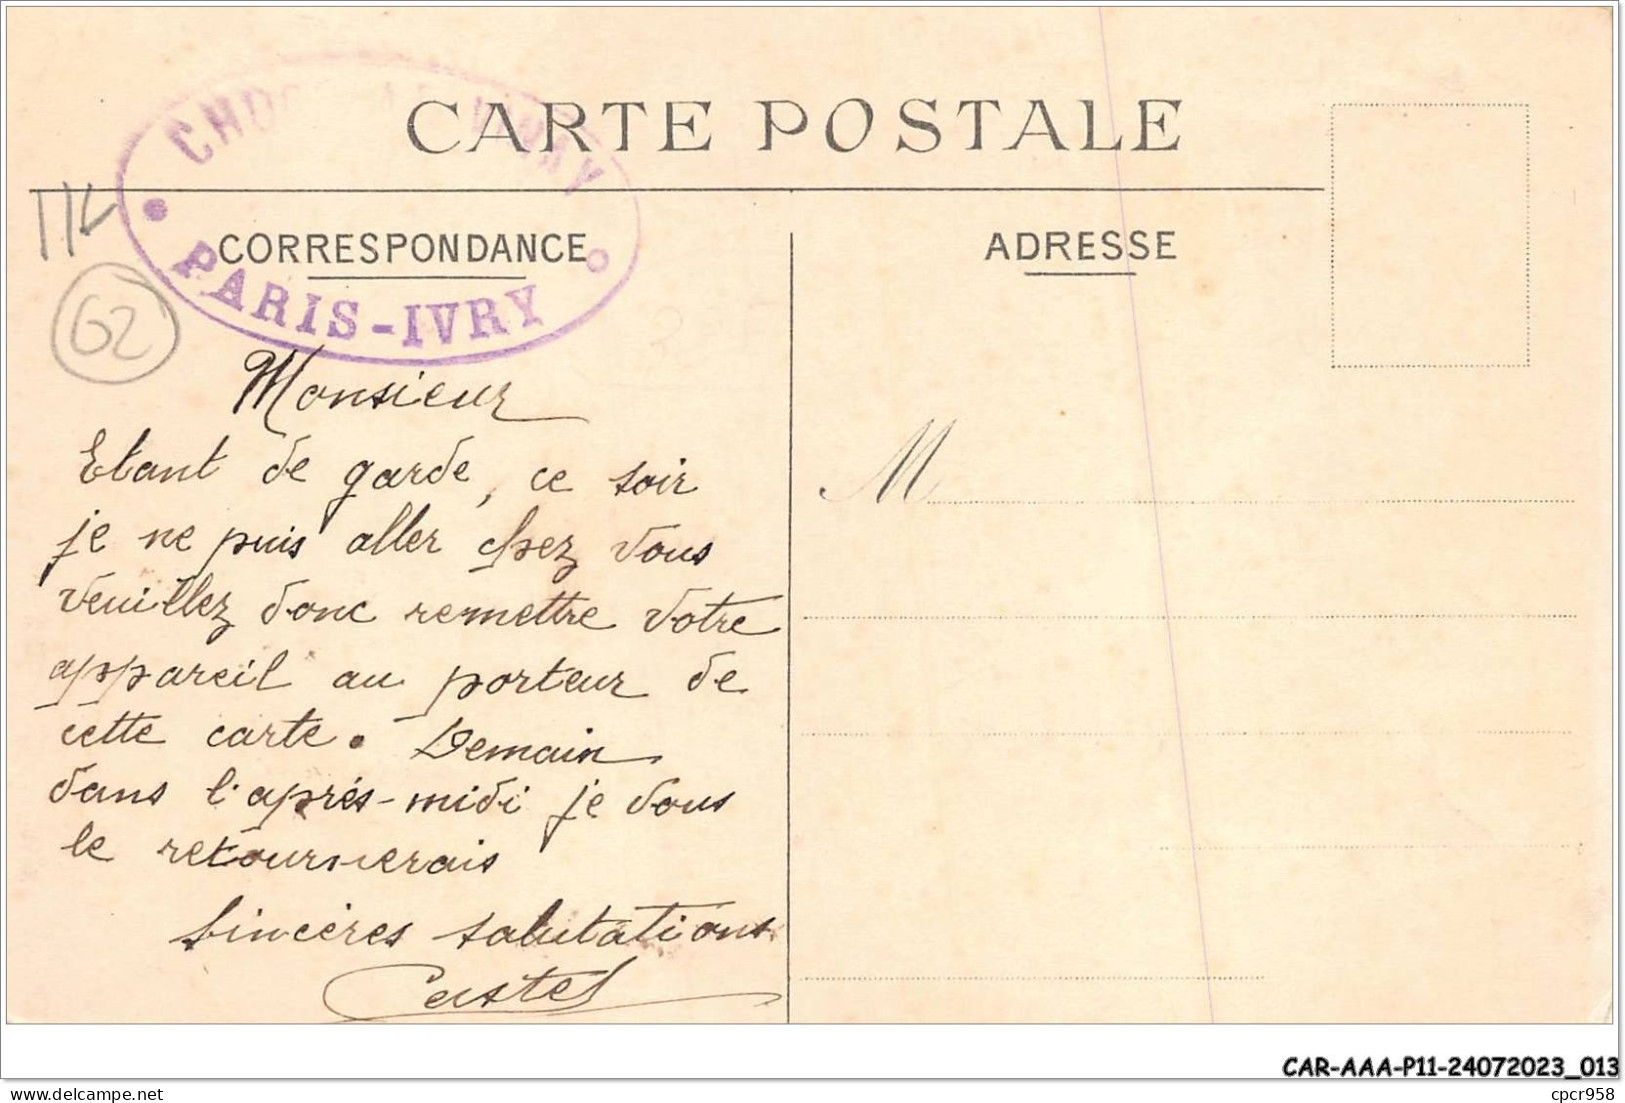 CARTE POSTALE
PARIS-IVRY
CORRESPONDANCE
ADRESSE
62
Monsieur
Etant de garde, ce soir
je ne puis aller chez vous
veuillez donc remettre votre
appareil au porteur de
cette carte. Demain
dans l'après-midi je vous
le retournerais
Sincères salutations
Castel
M
CAR-AAA-P11-24072023_013
cpcr958